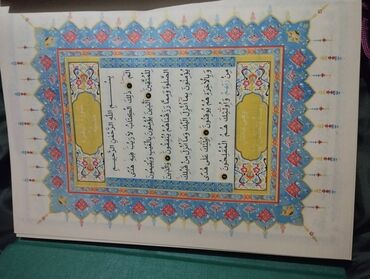 بِسْمِ اللهِ الرَّحْمٰنِ الرَّحِيمِ
الٓمٓ ذٰلِكَ الْكِتَابُ لَا رَيْبَ فِيهِ هُدًى
لِلْمُتَّقِينَ الَّذِينَ يُؤْمِنُونَ بِالْغَيْبِ وَيُقِيمُونَ
الصَّلٰوةَ وَمِمَّا رَزَقْنَاهُمْ يُنْفِقُونَ وَالَّذِينَ
يُؤْمِنُونَ بِمَا اُنْزِلَ اِلَيْكَ وَمَا اُنْزِلَ مِنْ قَبْلِكَ
وَبِالْاٰخِرَةِ هُمْ يُوقِنُونَ اُولٰئِكَ عَلٰى هُدًى
مِنْ رَبِّهِمْ وَاُولٰئِكَ هُمُ الْمُفْلِحُونَ